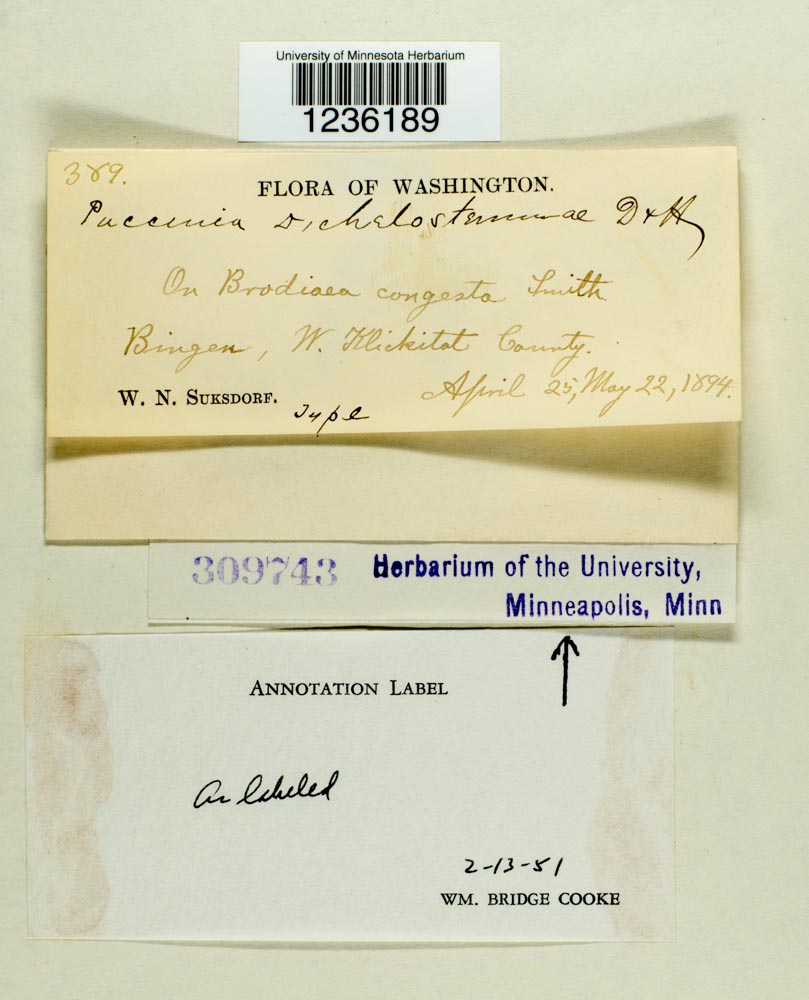 University of Minnesota Herbarium
1236189
389.
FLORA OF WASHINGTON.
Puccinia Dichelostemmae D & H
On Brodiaea congesta Smith
Bingen, W. Klickitat County.
W. N. SUKSDORF.
April 25, May 22, 1894.
Type
309743 Herbarium of the University,
Minneapolis, Minn
ANNOTATION LABEL
As labeled
2-13-51
WM. BRIDGE COOKE